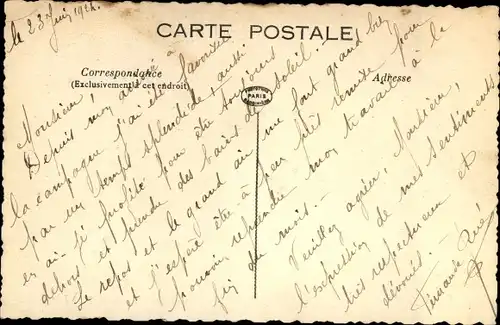 CARTE POSTALE
Correspondance
(Exclusivement à cet endroit)
Adresse
PARIS
le 23 Juin 1924.
Monsieur,
Depuis mon arrivée à
la campagne j'ai été favorisée
par un temps splendide, aussi
en ai-je profité pour être toujours
dehors et prendre des bains de soleil.
Le repos et le grand air me font grand bien
et j'espère être à peu près remise pour
pouvoir reprendre mon travail à la
fin du mois. -
Veuillez agréer, Monsieur,
l'expression de mes sentiments
très respectueux et
dévoués.
Fernande